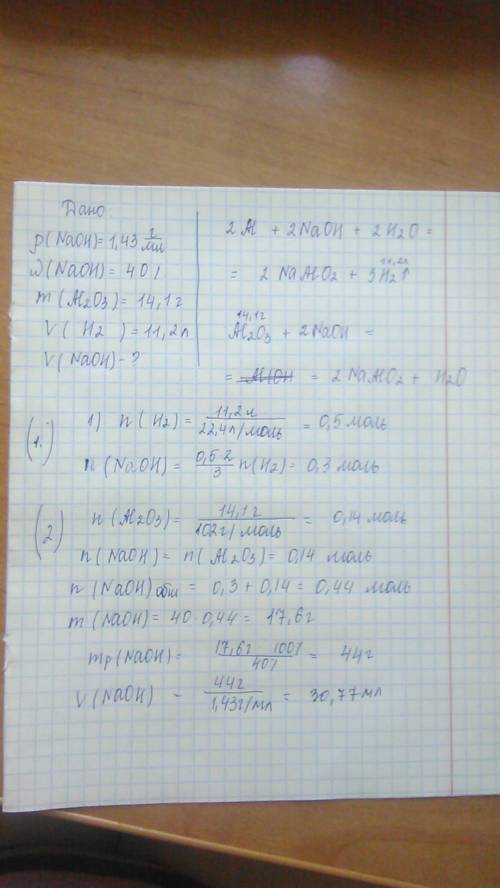 Дано:
ρ(NaOH)=1,43 г/мл
ω(NaOH)=40%
m(Al₂O₃)=14,1г
V(H₂)=11,2л
V(NaOH)-?
2Al + 2NaOH + 2H₂O =
11,2л
= 2NaAlO₂ + 3H₂↑
14,1г
Al₂O₃ + 2NaOH =
= = 2NaAlO₂ + H₂O
(1.) 1) n(H₂)= 11,2л/22,4л/моль = 0,5 моль
n(NaOH)= 0,5·2/3 n(H₂)= 0,3 моль
(2) n(Al₂O₃)= 14,1г/102г/моль = 0,14 моль
n(NaOH)= n(Al₂O₃)= 0,14 моль
n(NaOH)общ = 0,3+0,14= 0,44 моль
m(NaOH)= 40·0,44= 17,6г
mр(NaOH)= 17,6г 100%/40% = 44г
V(NaOH) - 44г/1,43г/мл = 30,77мл